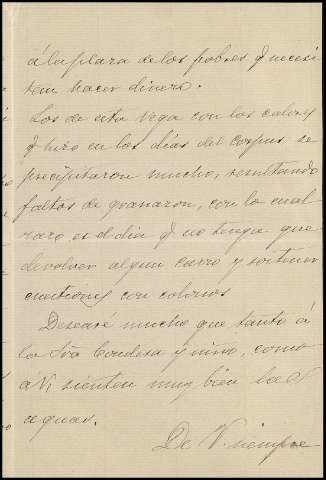 á la plaza de los pobres q. necesi
ten hacer dinero.
Los de esta vega con los calores
q. hizo en los días del Corpus se
precipitaron mucho, resultando
faltos de granazon, con lo cual
raro es el dia q. no tengo que
devolver algun carro y sostener
cuestiones con colonos
Desearé mucho que tanto á
la Sra Condesa y niño, como
á V. sienten muy bien las
aguas.
De V. siempre